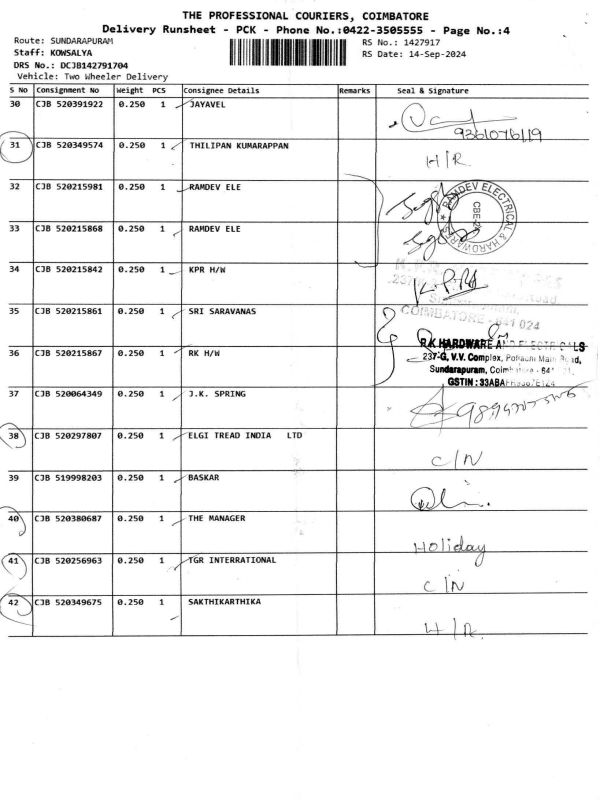 THE PROFESSIONAL COURIERS, COIMBATORE
Delivery Runsheet - PCK - Phone No.:0422-3505555 - Page No.:4
Route: SUNDARAPURAM RS No.: 1427917
Staff: KOWSALYA RS Date: 14-Sep-2024
DRS No.: DCJB142791704
Vehicle: Two Wheeler Delivery
S No Consignment No Weight PCS Consignee Details Remarks Seal & Signature
30 CJB 520391922 0.250 1 JAYAVEL
31 CJB 520349574 0.250 1 THILIPAN KUMARAPPAN H/R
32 CJB 520215981 0.250 1 RAMDEV ELE
RAMDEV ELECTRICAL & HARDWARES
33 CJB 520215868 0.250 1 RAMDEV ELE
34 CJB 520215842 0.250 1 KPR H/W
COIMBATORE - 641 024
35 CJB 520215861 0.250 1 SRI SARAVANAS
RK HARDWARE AND ELECTRICALS
36 CJB 520215867 0.250 1 RK H/W
237-G, V.V. Complex, Pollachi Main Road,
Sundarapuram, Coimbatore - 641
GSTIN :
37 CJB 520064349 0.250 1 J.K. SPRING
38 CJB 520297807 0.250 1 ELGI TREAD INDIA LTD C/N
39 CJB 519998203 0.250 1 BASKAR
40 CJB 520380687 0.250 1 THE MANAGER Holiday
41 CJB 520256963 0.250 1 TGR INTERRATIONAL C/N
42 CJB 520349675 0.250 1 SAKTHIKARTHIKA H/R